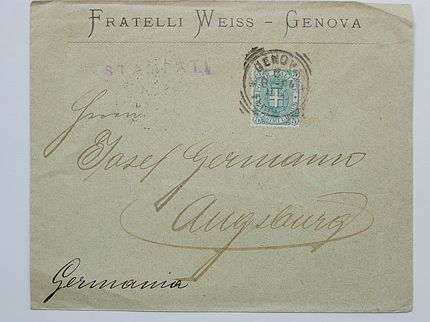 FRATELLI WEISS - GENOVA
STAMPATI
GENOVA
5 5
Herrn
Josef Germann
Augsburg
Germania